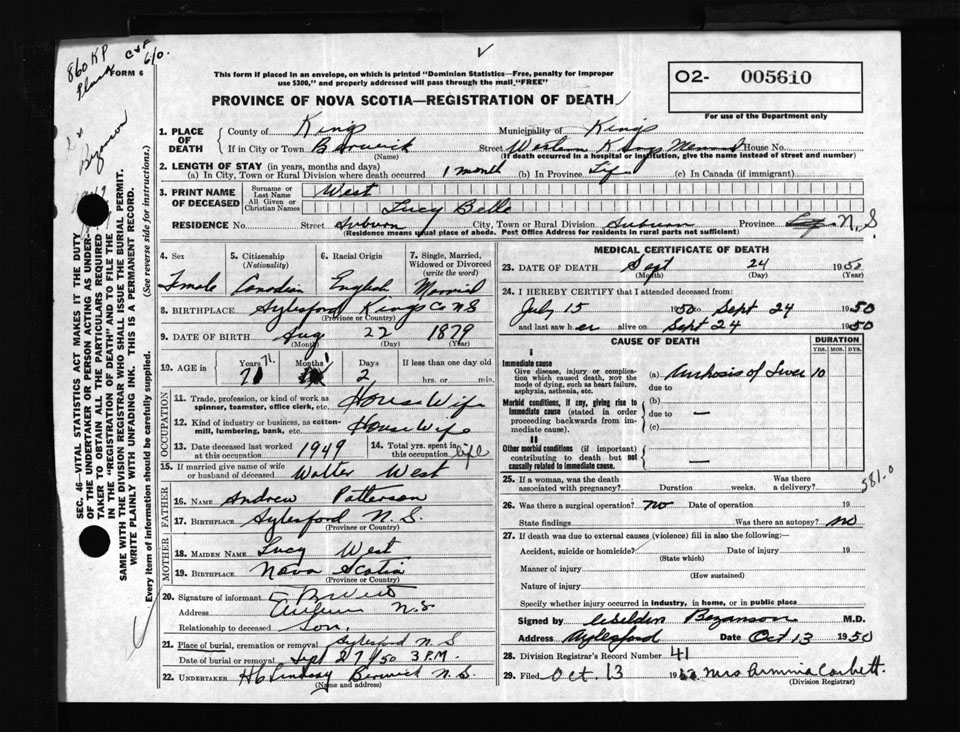 860 KP
C & F
6/0.
FORM 6
Bezanson
SEC. 46—VITAL STATISTICS ACT MAKES IT THE DUTY
OF THE UNDERTAKER OR PERSON ACTING AS UNDER-
TAKER TO OBTAIN ALL THE PARTICULARS REQUIRED
IN THE "REGISTRATION OF DEATH" AND TO FILE THE
SAME WITH THE DIVISION REGISTRAR WHO SHALL ISSUE THE BURIAL PERMIT.
WRITE PLAINLY WITH UNFADING INK. THIS IS A PERMANENT RECORD.
Every item of information should be carefully supplied. (See reverse side for instructions.)
This form if placed in an envelope, on which is printed "Dominion Statistics—Free, penalty for improper
use $300," and properly addressed will pass through the mail "FREE"
PROVINCE OF NOVA SCOTIA—REGISTRATION OF DEATH
O2- 005610
For use of the Department only
1. PLACE OF DEATH County of Kings Municipality of Kings
If in City or Town Berwick (Name) Street Western Kings Memorial House No.
(If death occurred in a hospital or institution, give the name instead of street and number)
2. LENGTH OF STAY (in years, months and days)
(a) In City, Town or Rural Division where death occurred 1 month (b) In Province Life (c) In Canada (if immigrant)
3. PRINT NAME OF DECEASED Surname or Last Name West
All Given or Christian Names Lucy Belle
RESIDENCE No. Street Auburn City, Town or Rural Division Auburn Province N.S.
(Residence means usual place of abode. Post Office Address for residents in rural parts not sufficient)
4. Sex Female
5. Citizenship (Nationality) Canadian
6. Racial Origin English
7. Single, Married, Widowed or Divorced (write the word) Married
8. BIRTHPLACE Aylesford Kings Co N S
(Province or Country)
9. DATE OF BIRTH Aug 22 1879
(Month) (Day) (Year)
10. AGE in Years 71 Months 1 Days 2 If less than one day old hrs. or min.
OCCUPATION
11. Trade, profession, or kind of work as spinner, teamster, office clerk, etc. House Wife
12. Kind of industry or business, as cotton-mill, lumbering, bank, etc. House Wife
13. Date deceased last worked at this occupation 1949 14. Total yrs. spent in this occupation life
15. If married give name of wife or husband of deceased Walter West
FATHER
16. NAME Andrew Patterson
17. BIRTHPLACE Aylesford N.S.
(Province or Country)
MOTHER
18. MAIDEN NAME Lucy West
19. BIRTHPLACE Nova Scotia
(Province or Country)
20. Signature of informant
Address Auburn N.S
Relationship to deceased Son.
21. Place of burial, cremation or removal Aylesford N S
Date of burial or removal Sept 27/50 3 P.M.
22. UNDERTAKER H C Lindsay Berwick N.S.
(Name and address)
MEDICAL CERTIFICATE OF DEATH
23. DATE OF DEATH Sept 24 1950
(Month) (Day) (Year)
24. I HEREBY CERTIFY that I attended deceased from:
July 15 1950 to Sept 24 1950
and last saw her alive on Sept 24 1950
CAUSE OF DEATH DURATION
YRS. MOS. DYS.
I
Immediate cause
Give disease, injury or complication which caused death, NOT the mode of dying, such as heart failure, asphyxia, asthenia, etc.
(a) Cirrhosis of Liver 10
due to
Morbid conditions, if any, giving rise to immediate cause (stated in order proceeding backwards from immediate cause).
(b)
due to —
(c)
II
Other morbid conditions (if important) contributing to death but not causally related to immediate cause. —
581.0
25. If a woman, was the death associated with pregnancy? Duration weeks. Was there a delivery?
26. Was there a surgical operation? No Date of operation 19
State findings Was there an autopsy? No
27. If death was due to external causes (violence) fill in also the following:—
Accident, suicide or homicide? Date of injury 19
(State which)
Manner of injury
(How sustained)
Nature of injury
Specify whether injury occurred in industry, in home, or in public place
Signed by Bezanson M.D.
Address Aylesford Date Oct 13 1950
28. Division Registrar's Record Number 41
29. Filed Oct. 13 1950 Mrs Corbett
(Division Registrar)